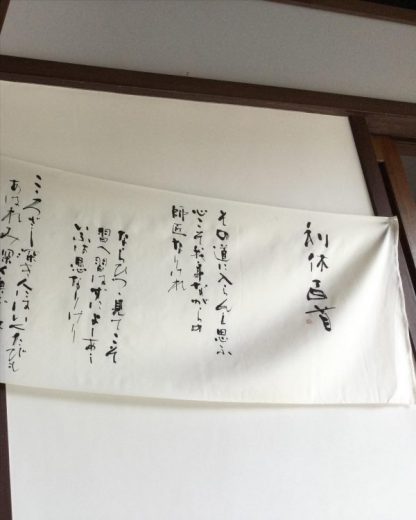 利休百首
その道に入らんと思ふ
心こそ我身ながらの
師匠なりけれ
ならひつゝ見てこそ
習へ習はずによしあし
いふは愚なりけり
こゝろざし深き人にはいくたびも
あはれみ深く